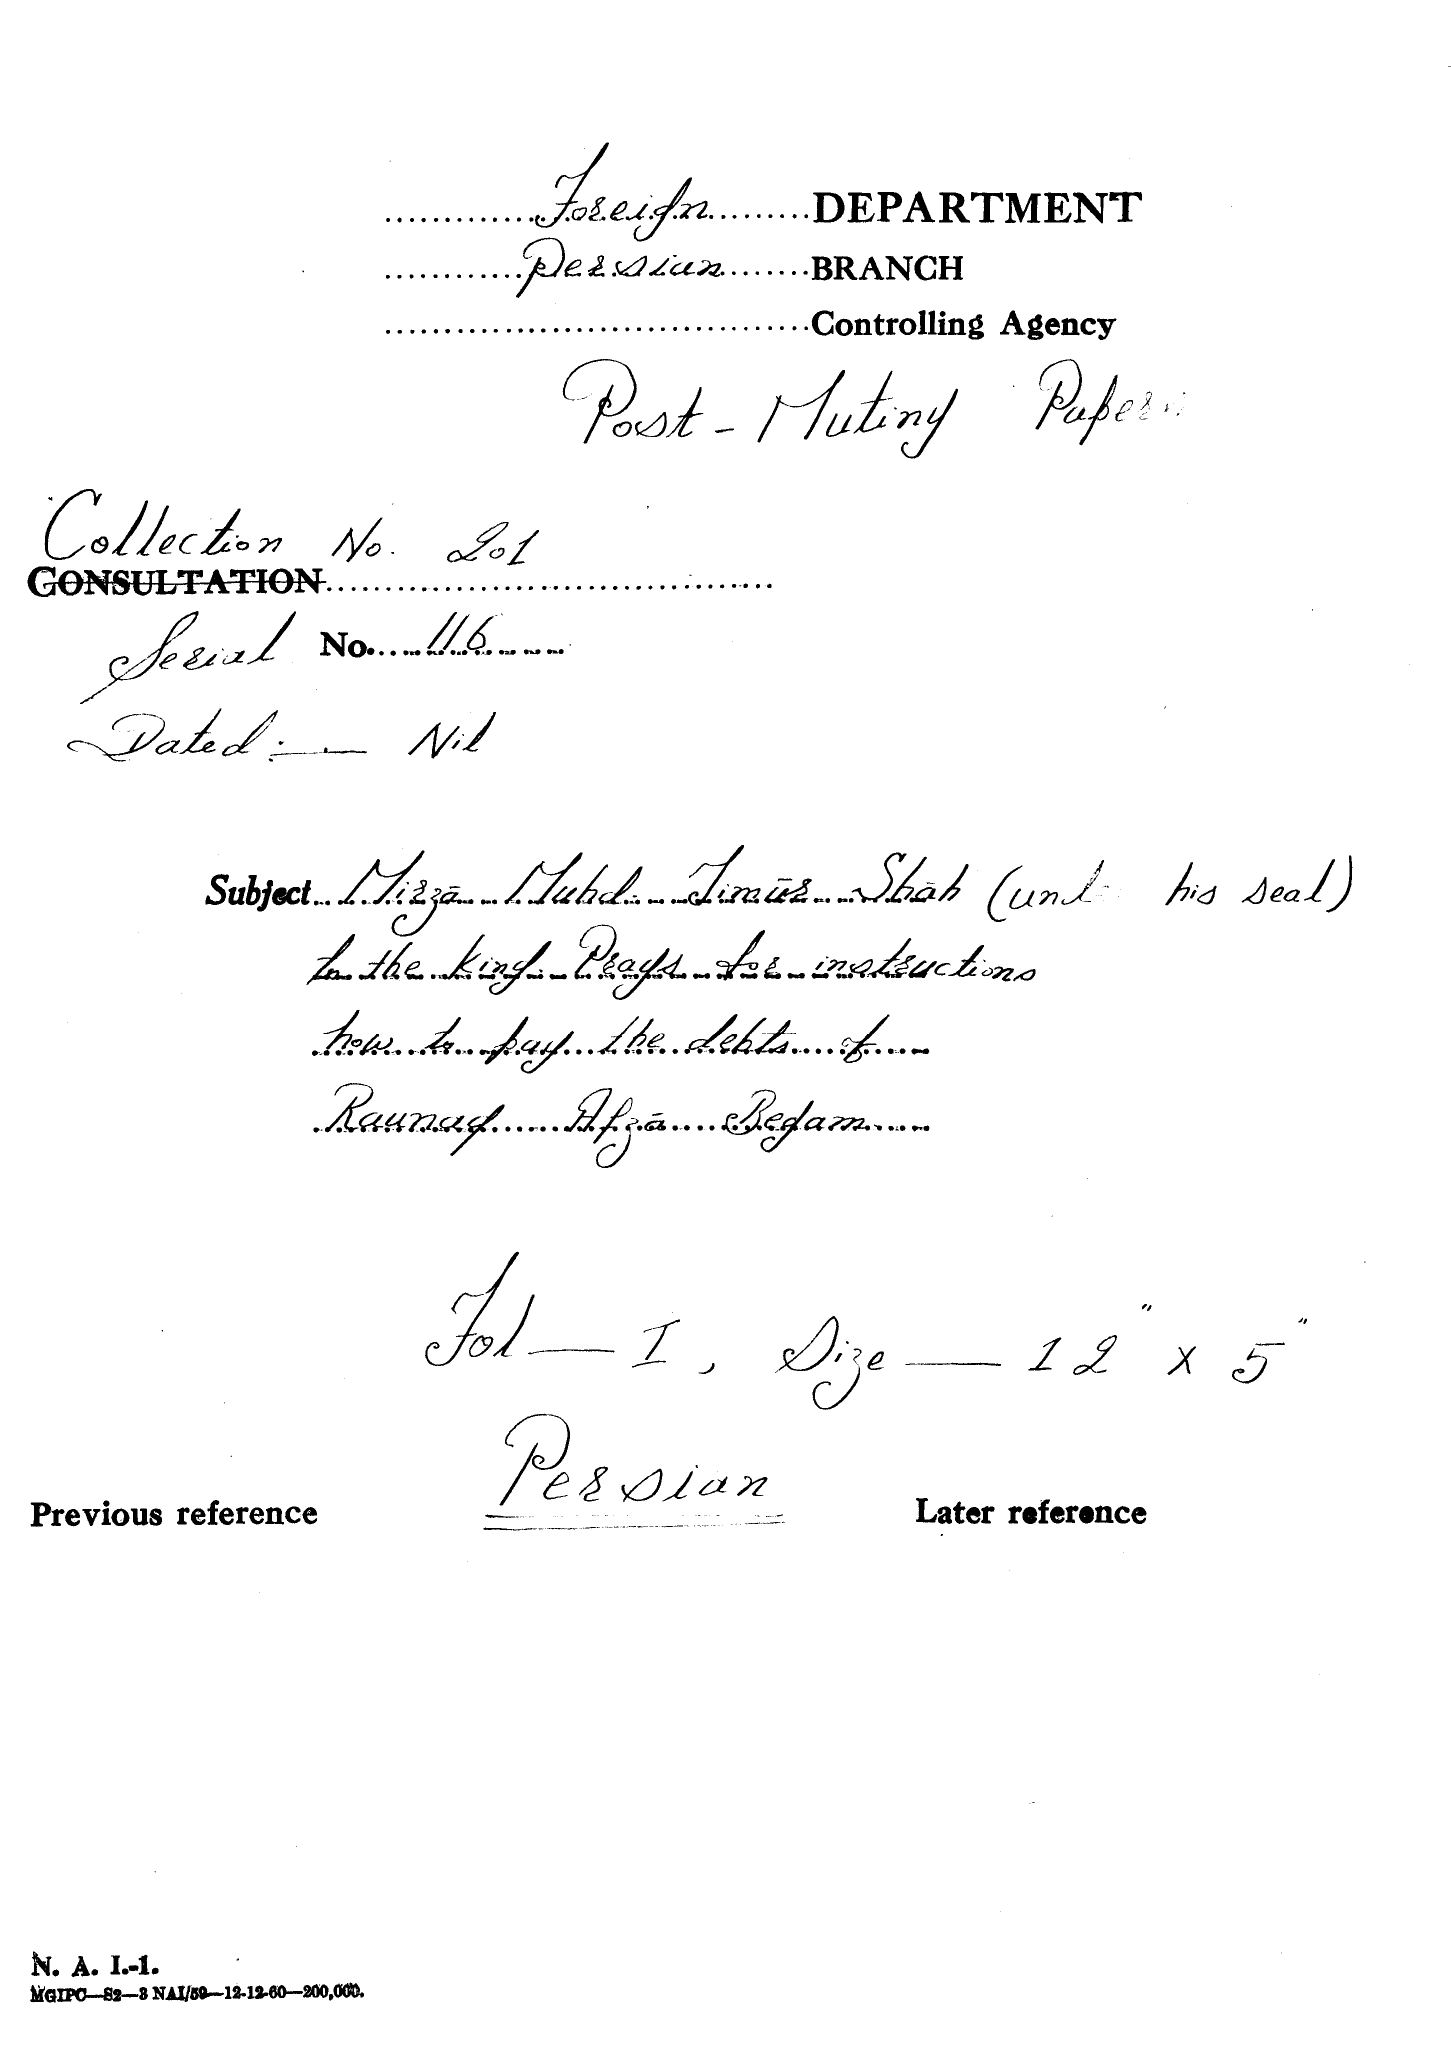 Foreign DEPARTMENT
Persian BRANCH
Controlling Agency
Post - Mutiny Papers
Collection No. 201
CONSULTATION
Serial No. 116
Dated :— Nil
Subject Mirzā Muhd. Timūr Shāh (und his seal)
to the king. Prays for instructions
how to pay the debts of
Raunaq Afzā Begam
Fol — I, Size — 12" x 5"
Persian
Previous reference Later reference
N. A. I.-1.
MGIPC—S2—3 NAI/59—12-12-60—200,000.